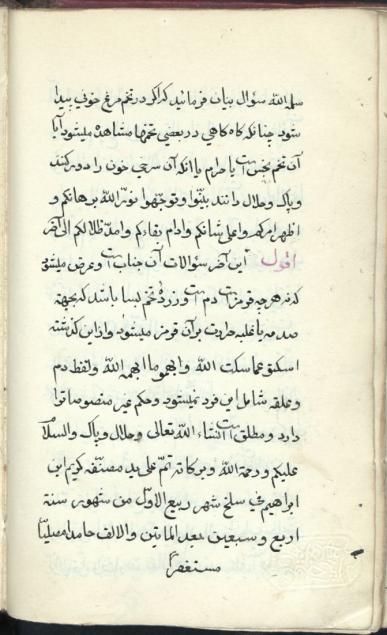 سلمه الله سؤال بیان فرمائید که اگر در تخم مرغ خونی پیدا
شود چنانکه گاه گاهی در بعضی تخمها مشاهده میشود آیا
آن تخم نجس است یا حرام یا آنکه آن سرخی خون را دور کنند
و پاک و حلال دانند بینوا و توجهوا نور الله برهانکم و
اظهر امرکم و اعلی شانکم و ادام بقاءکم و امد ظلالکم الی آخر
اقول این آخر سؤالات آن جناب است و عرض میشود
که نه هر چه قرمز است دم است و زرده تخم لیسا باشد که بجهة
صدمه یا غلبه حرارت بر آن قرمز میشود و از این گذشته
اسکتوا عما سکت الله و ابهموا ما ابهمه الله و لفظ دم
و علقه شامل این فرد نمیشود و حکم غیر منصوصات را
دارد و مطلق است انشاء الله تعالی و حلال و پاک و السلام
علیکم و رحمة الله و برکاته تم علی ید مصنفه کریم ابن
ابراهیم فی سلخ شهر ربیع الاول من شهور سنة
اربع و سبعین بعد المأتین و الالف حامدا مصلیا
مستغفرا